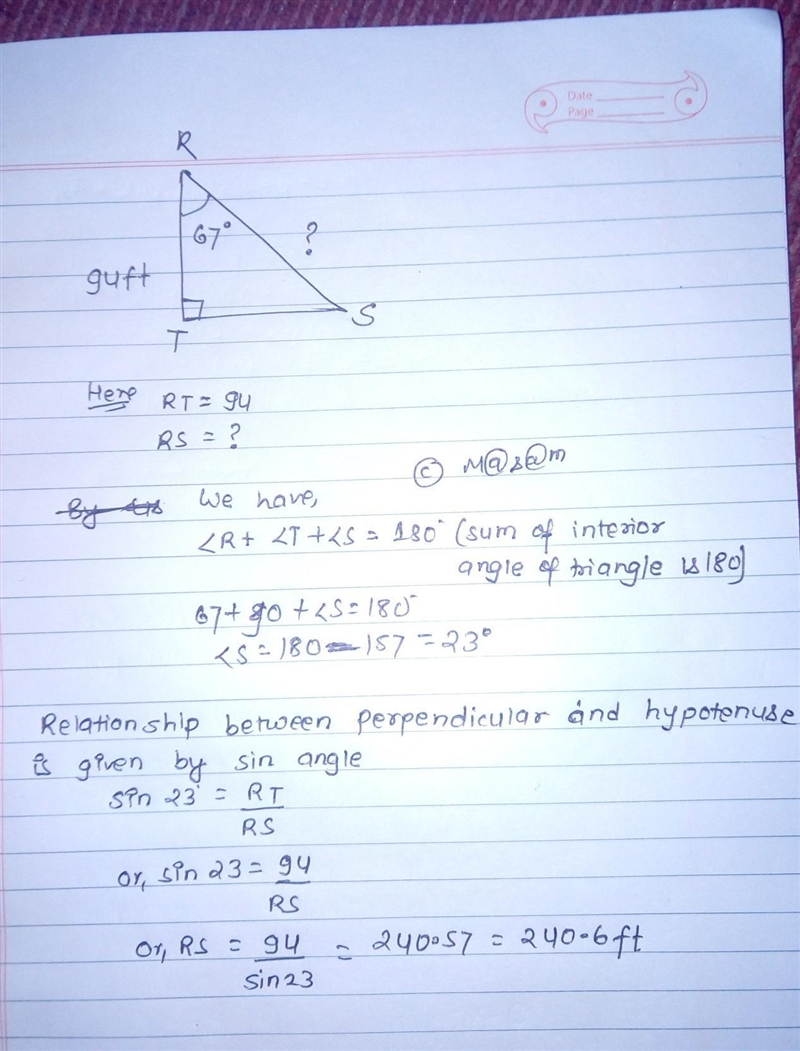 Date
Page
R
67°
?
94ft
T
S
Here RT = 94
RS = ?
© M@s@m
We have,
∠R + ∠T + ∠S = 180° (sum of interior
angle of triangle is 180)
67 + 90 + ∠S = 180°
∠S = 180 - 157 = 23°
Relationship between perpendicular and hypotenuse
is given by sin angle
sin 23° = RT
RS
or, sin 23 = 94
RS
or, RS = 94 = 240.57 = 240.6 ft
sin 23